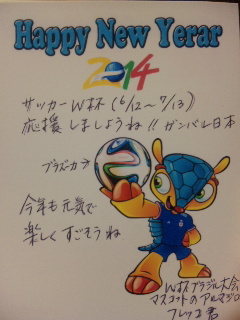 Happy New Yerar
2014
サッカーW杯(6/12〜7/13)
応援しましょうね!! ガンバル日本
ブラズーカ→
今年も元気で
楽しくすごそうね
W杯ブラジル大会
マスコットのアルマジロ
フレッコ君